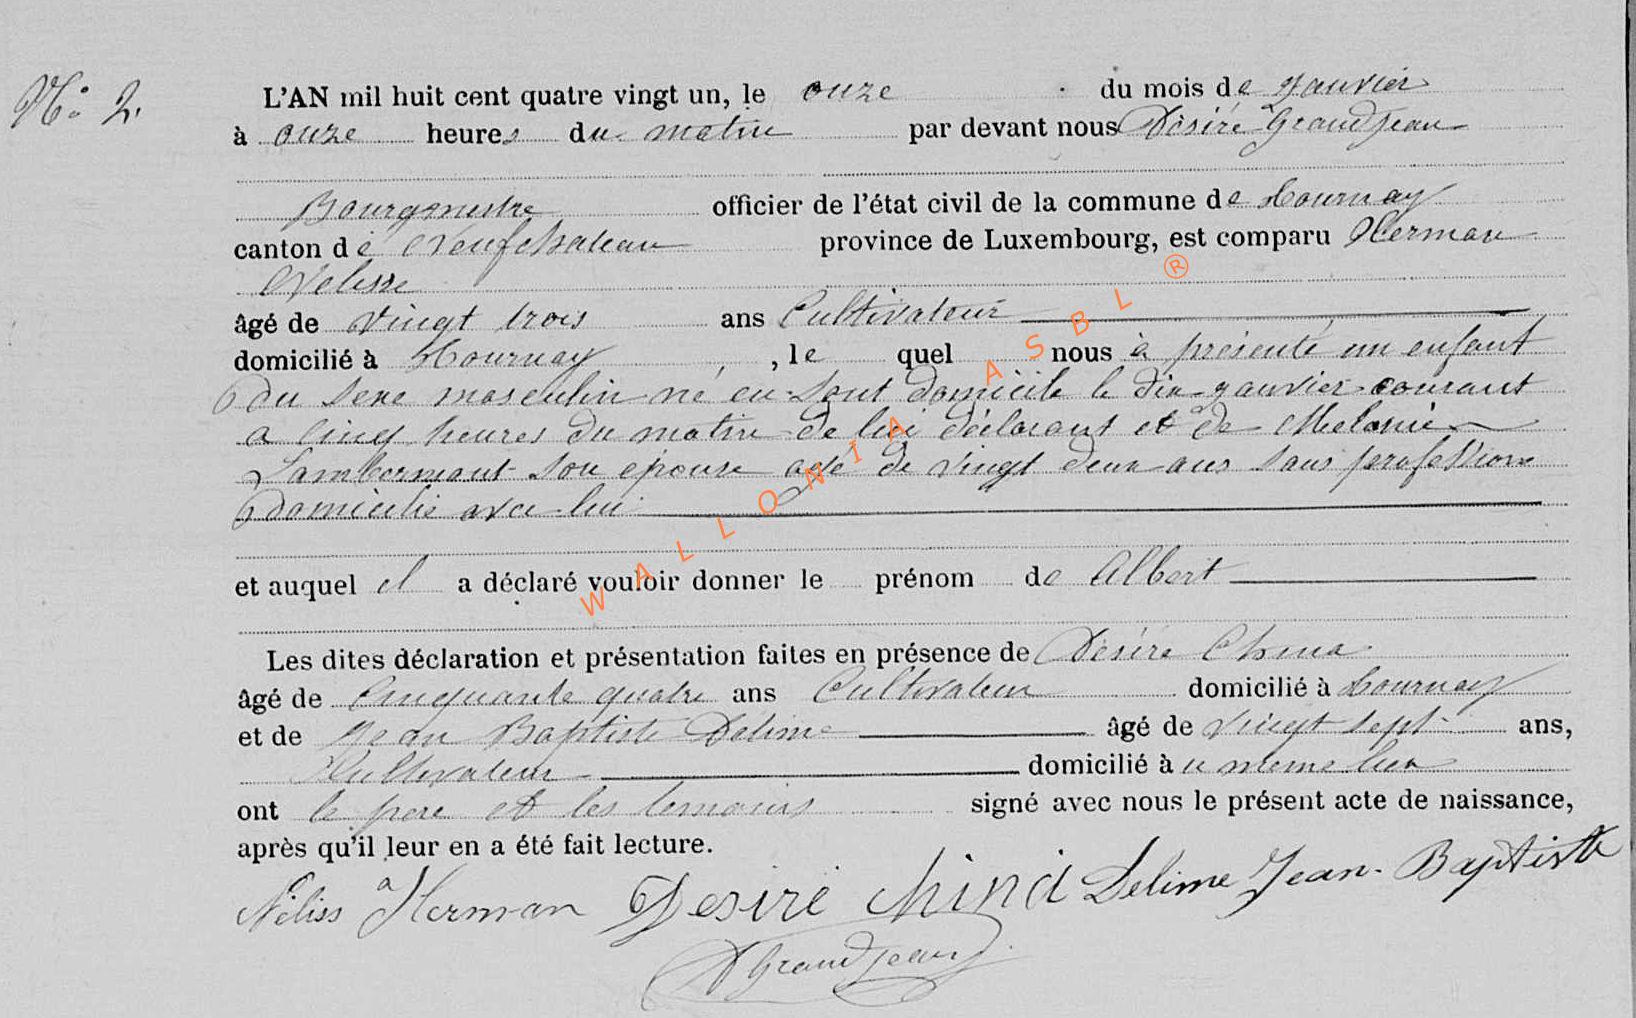 No 2.
L'AN mil huit cent quatre vingt un, le onze du mois de Janvier
à onze heures du matin par devant nous Désiré Grandjean
Bourgmestre officier de l'état civil de la commune de Tournay
canton de Neufchateau province de Luxembourg, est comparu Herman
Nelisse
âgé de vingt trois ans Cultivateur
domicilié à Tournay, le quel nous à présenté un enfant
du sexe masculin né en sont domicile le dix Janvier courant
a cinq heures du matin de lui déclarant et de Melanie
Lambermont son épouse agé de vingt deux ans sans profession
Domicilié avec lui
et auquel il a déclaré vouloir donner le prénom de Albert
Les dites déclaration et présentation faites en présence de Désiré
âgé de Cinquante quatre ans Cultivateur domicilié à Tournay
et de Jean Baptiste Delime âgé de vingt sept ans,
Kultivateur domicilié à u même lieu
ont le pere et les temoins signé avec nous le présent acte de naissance,
après qu'il leur en a été fait lecture.
Néliss Herman Desiré Delime Jean-Baptiste
D Grandjean
WALLONIA ASBL ®